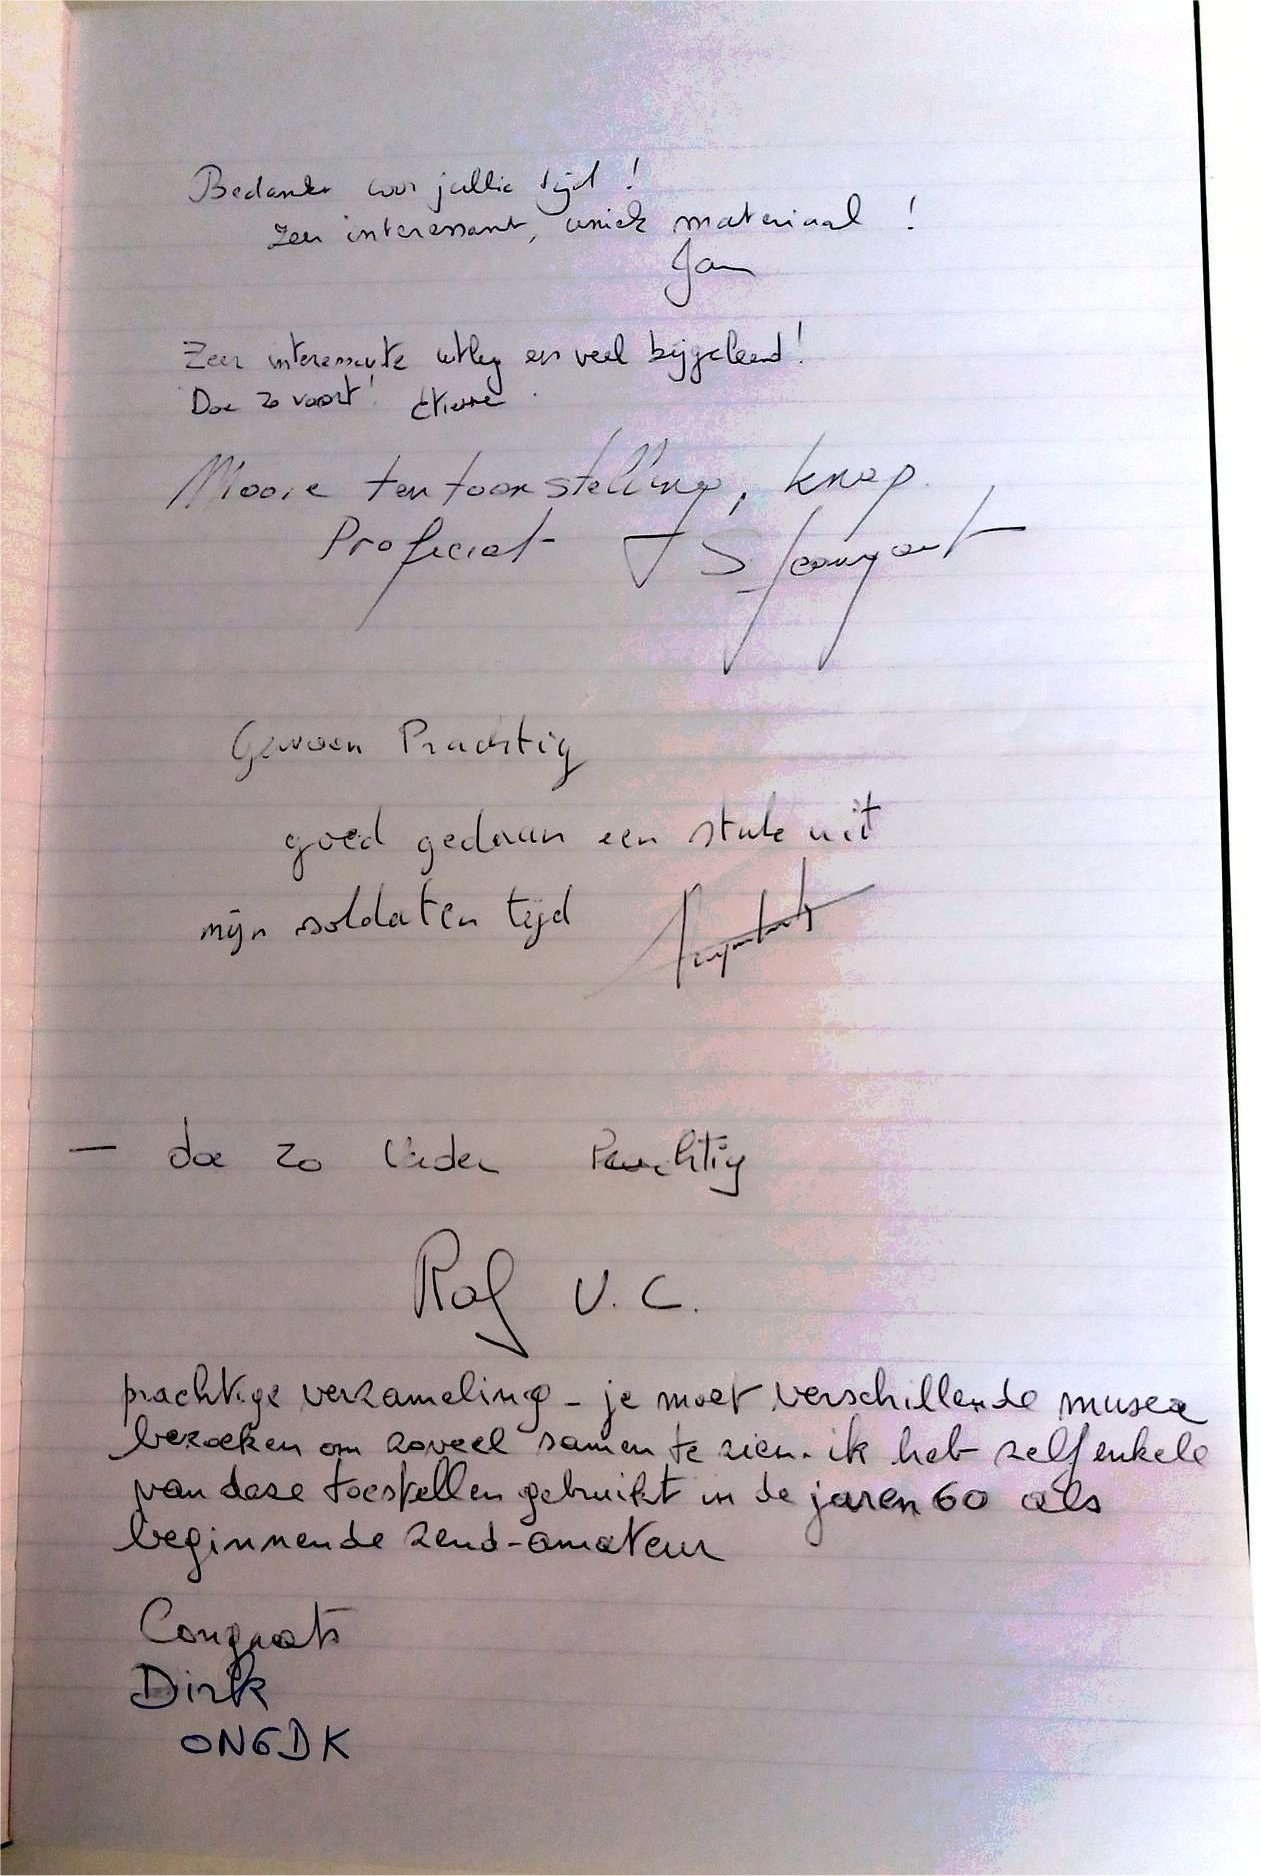 Bedankt voor jullie tijd !
Zeer interessant, uniek materiaal !
Jan
Zeer interessante uitleg en veel bijgeleerd !
Doe zo voort ! Etienne
Mooie tentoonstelling, knap.
Proficiat J S
Gewoon Prachtig
goed gedaan een stuk uit
mijn soldaten tijd
— doe zo verder Prachtig
Raf V. C.
prachtige verzameling - je moet verschillende musea
bezoeken om zoveel samen te zien. ik heb zelf enkele
van deze toestellen gebruikt in de jaren 60 als
beginnende zend-amateur
Congrats
Dirk
ON6DK